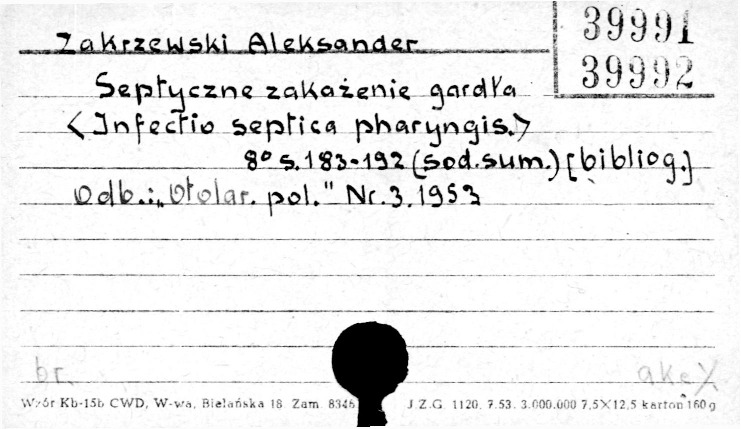 39991
39992
Zakrzewski Aleksander
Septyczne zakażenie gardła
<Infectio septica pharyngis.>
8° s. 183-192 (sod. sum.) [bibliog.]
Odb.: „Otolar. pol." Nr. 3. 1953
br.
Wzór Kb-15b CWD, W-wa, Bielańska 18. Zam. 8346 J.Z.G. 1120. 7.53. 3.000.000 7,5×12,5 karton 160 g